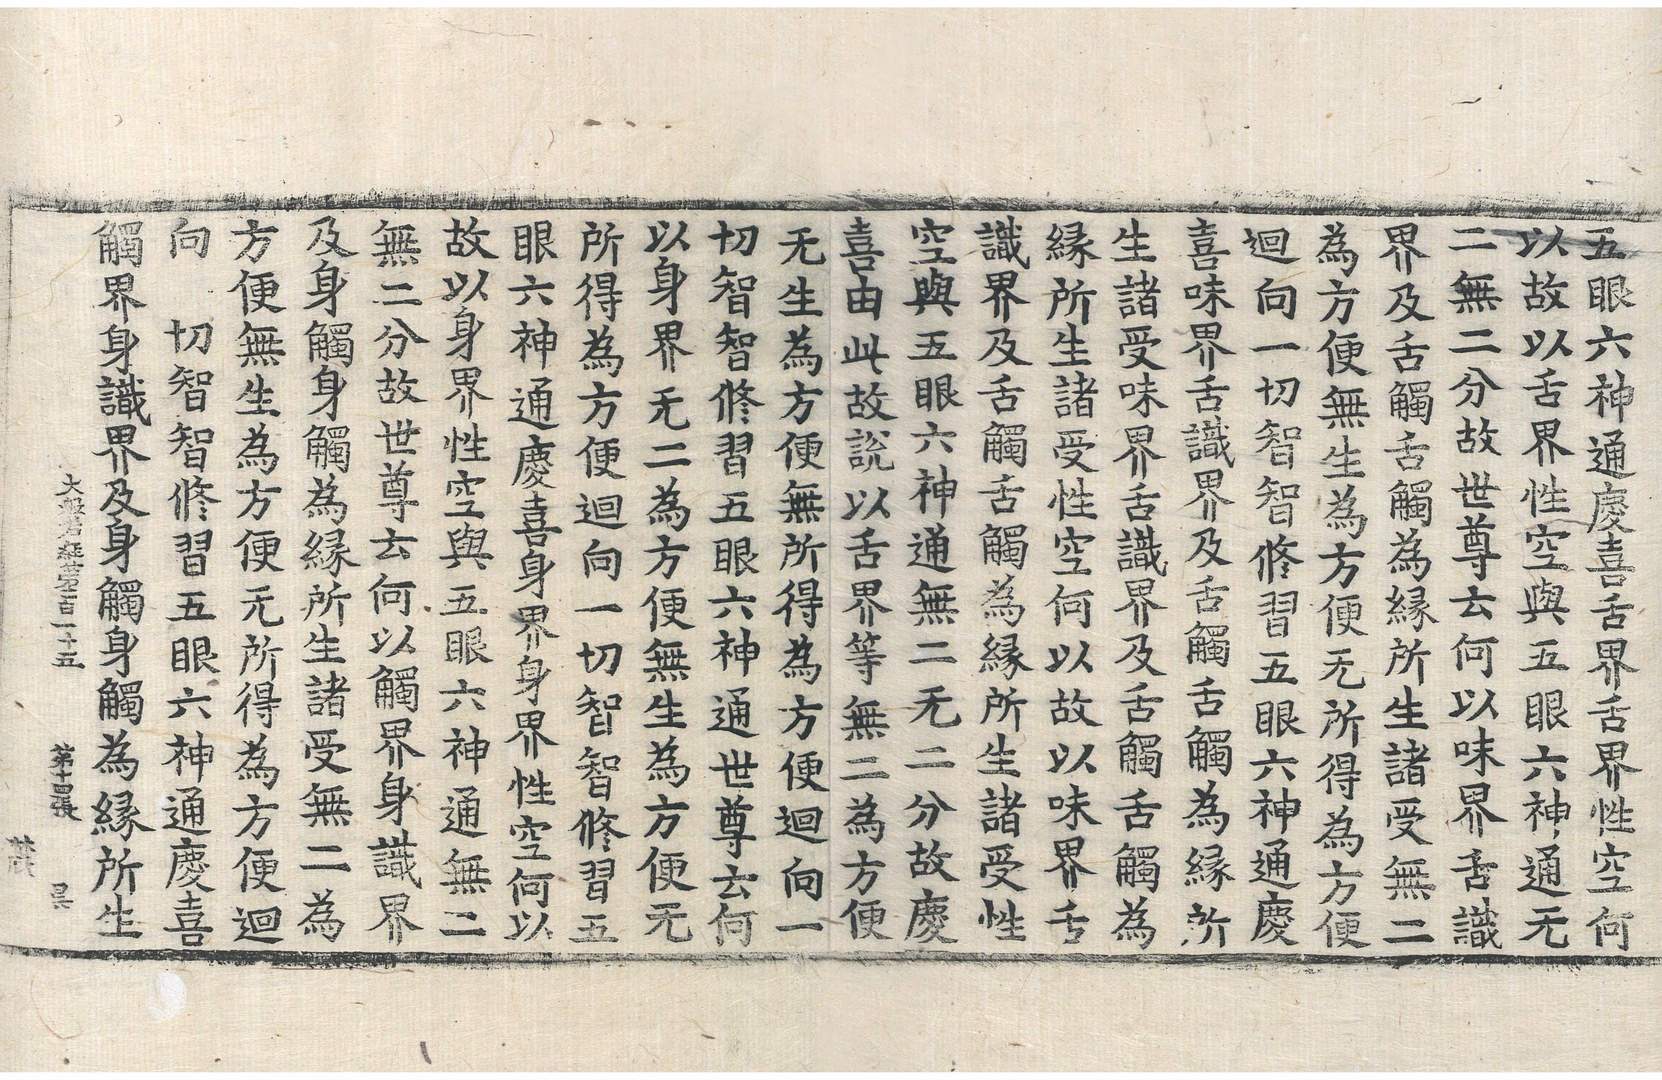 五眼六神通慶喜舌界舌界性空何
以故以舌界性空與五眼六神通无
二無二分故世尊云何以味界舌識
界及舌觸舌觸為縁所生諸受無二
為方便無生為方便无所得為方便
迴向一切智智修習五眼六神通慶
喜味界舌識界及舌觸舌觸為縁所
生諸受味界舌識界及舌觸舌觸為
縁所生諸受性空何以故以味界舌
識界及舌觸舌觸為縁所生諸受性
空與五眼六神通無二无二分故慶
喜由此故說以舌界等無二為方便
无生為方便無所得為方便迴向一
切智智修習五眼六神通世尊云何
以身界无二為方便無生為方便无
所得為方便迴向一切智智修習五
眼六神通慶喜身界身界性空何以
故以身界性空與五眼六神通無二
無二分故世尊云何以觸界身識界
及身觸身觸為縁所生諸受無二為
方便無生為方便无所得為方便迴
向 切智智修習五眼六神通慶喜
觸界身識界及身觸身觸為縁所生
大般若經苐一百一十五 苐十四張 昃